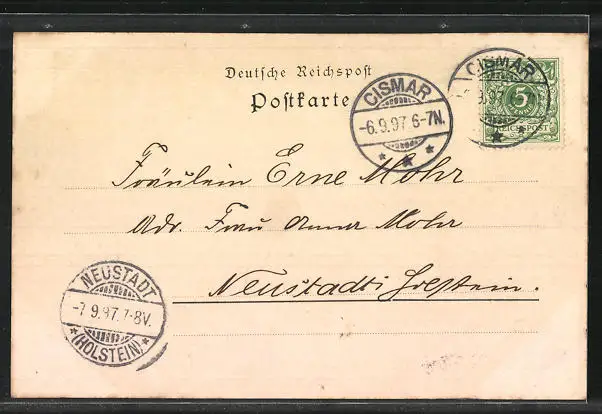 Deutsche Reichspost
Postkarte
CISMAR
-6.9.97 6-7N.
CISMAR
9.97
5
REICHSPOST
Fräulein Erne Mohr
Adr. Frau Anna Mohr
Neustadt i Holstein.
NEUSTADT
-7.9.97.7-8V.
(HOLSTEIN)